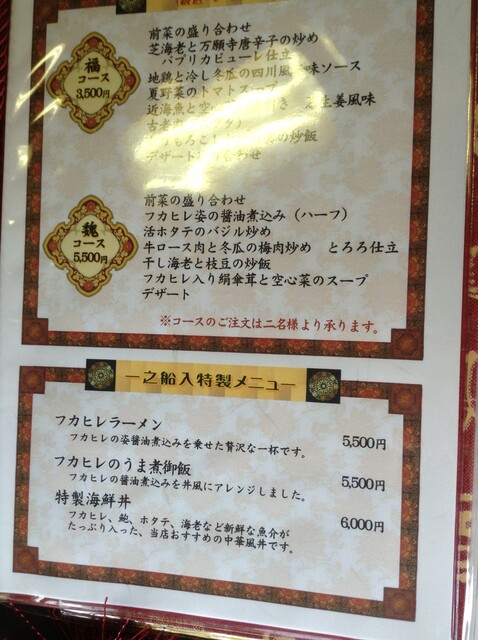 福
コース
3,500円
前菜の盛り合わせ
芝海老と万願寺唐辛子の炒め
パプリカピューレ仕立
地鶏と冷し冬瓜の四川風 味ソース
夏野菜のトマトスープ
近海魚と空心 生姜風味
もろこし の炒飯
デザート 合わせ
魏
コース
5,500円
前菜の盛り合わせ
フカヒレ姿の醤油煮込み（ハーフ）
活ホタテのバジル炒め
牛ロース肉と冬瓜の梅肉炒め とろろ仕立
干し海老と枝豆の炒飯
フカヒレ入り絹傘茸と空心菜のスープ
デザート
※コースのご注文は二名様より承ります。
一之船入特製メニュー
フカヒレラーメン
フカヒレの姿醤油煮込みを乗せた贅沢な一杯です。
5,500円
フカヒレのうま煮御飯
フカヒレの醤油煮込みを丼風にアレンジしました。
5,500円
特製海鮮丼
フカヒレ、鮑、ホタテ、海老など新鮮な魚介が
たっぷり入った、当店おすすめの中華風丼です。
6,000円